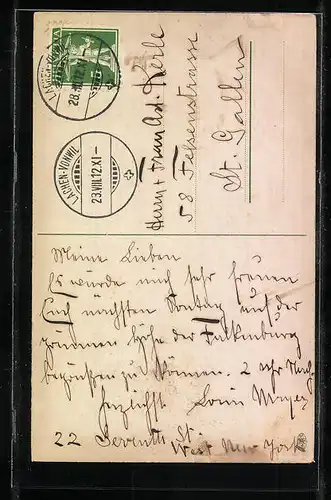 HELVETIA
LACHEN-VONWIL
23.VIII.12.XI-
Herrn + Frau Ad. Kerle
58 Felsenstrasse
St. Gallen
Meine Lieben
Es würde mich sehr freuen
Euch nächsten Sontag auf der
Höhe der Falkenburg
begrüßen zu können. 2 Uhr
Herzlichst
22 Seventh St.
West New York